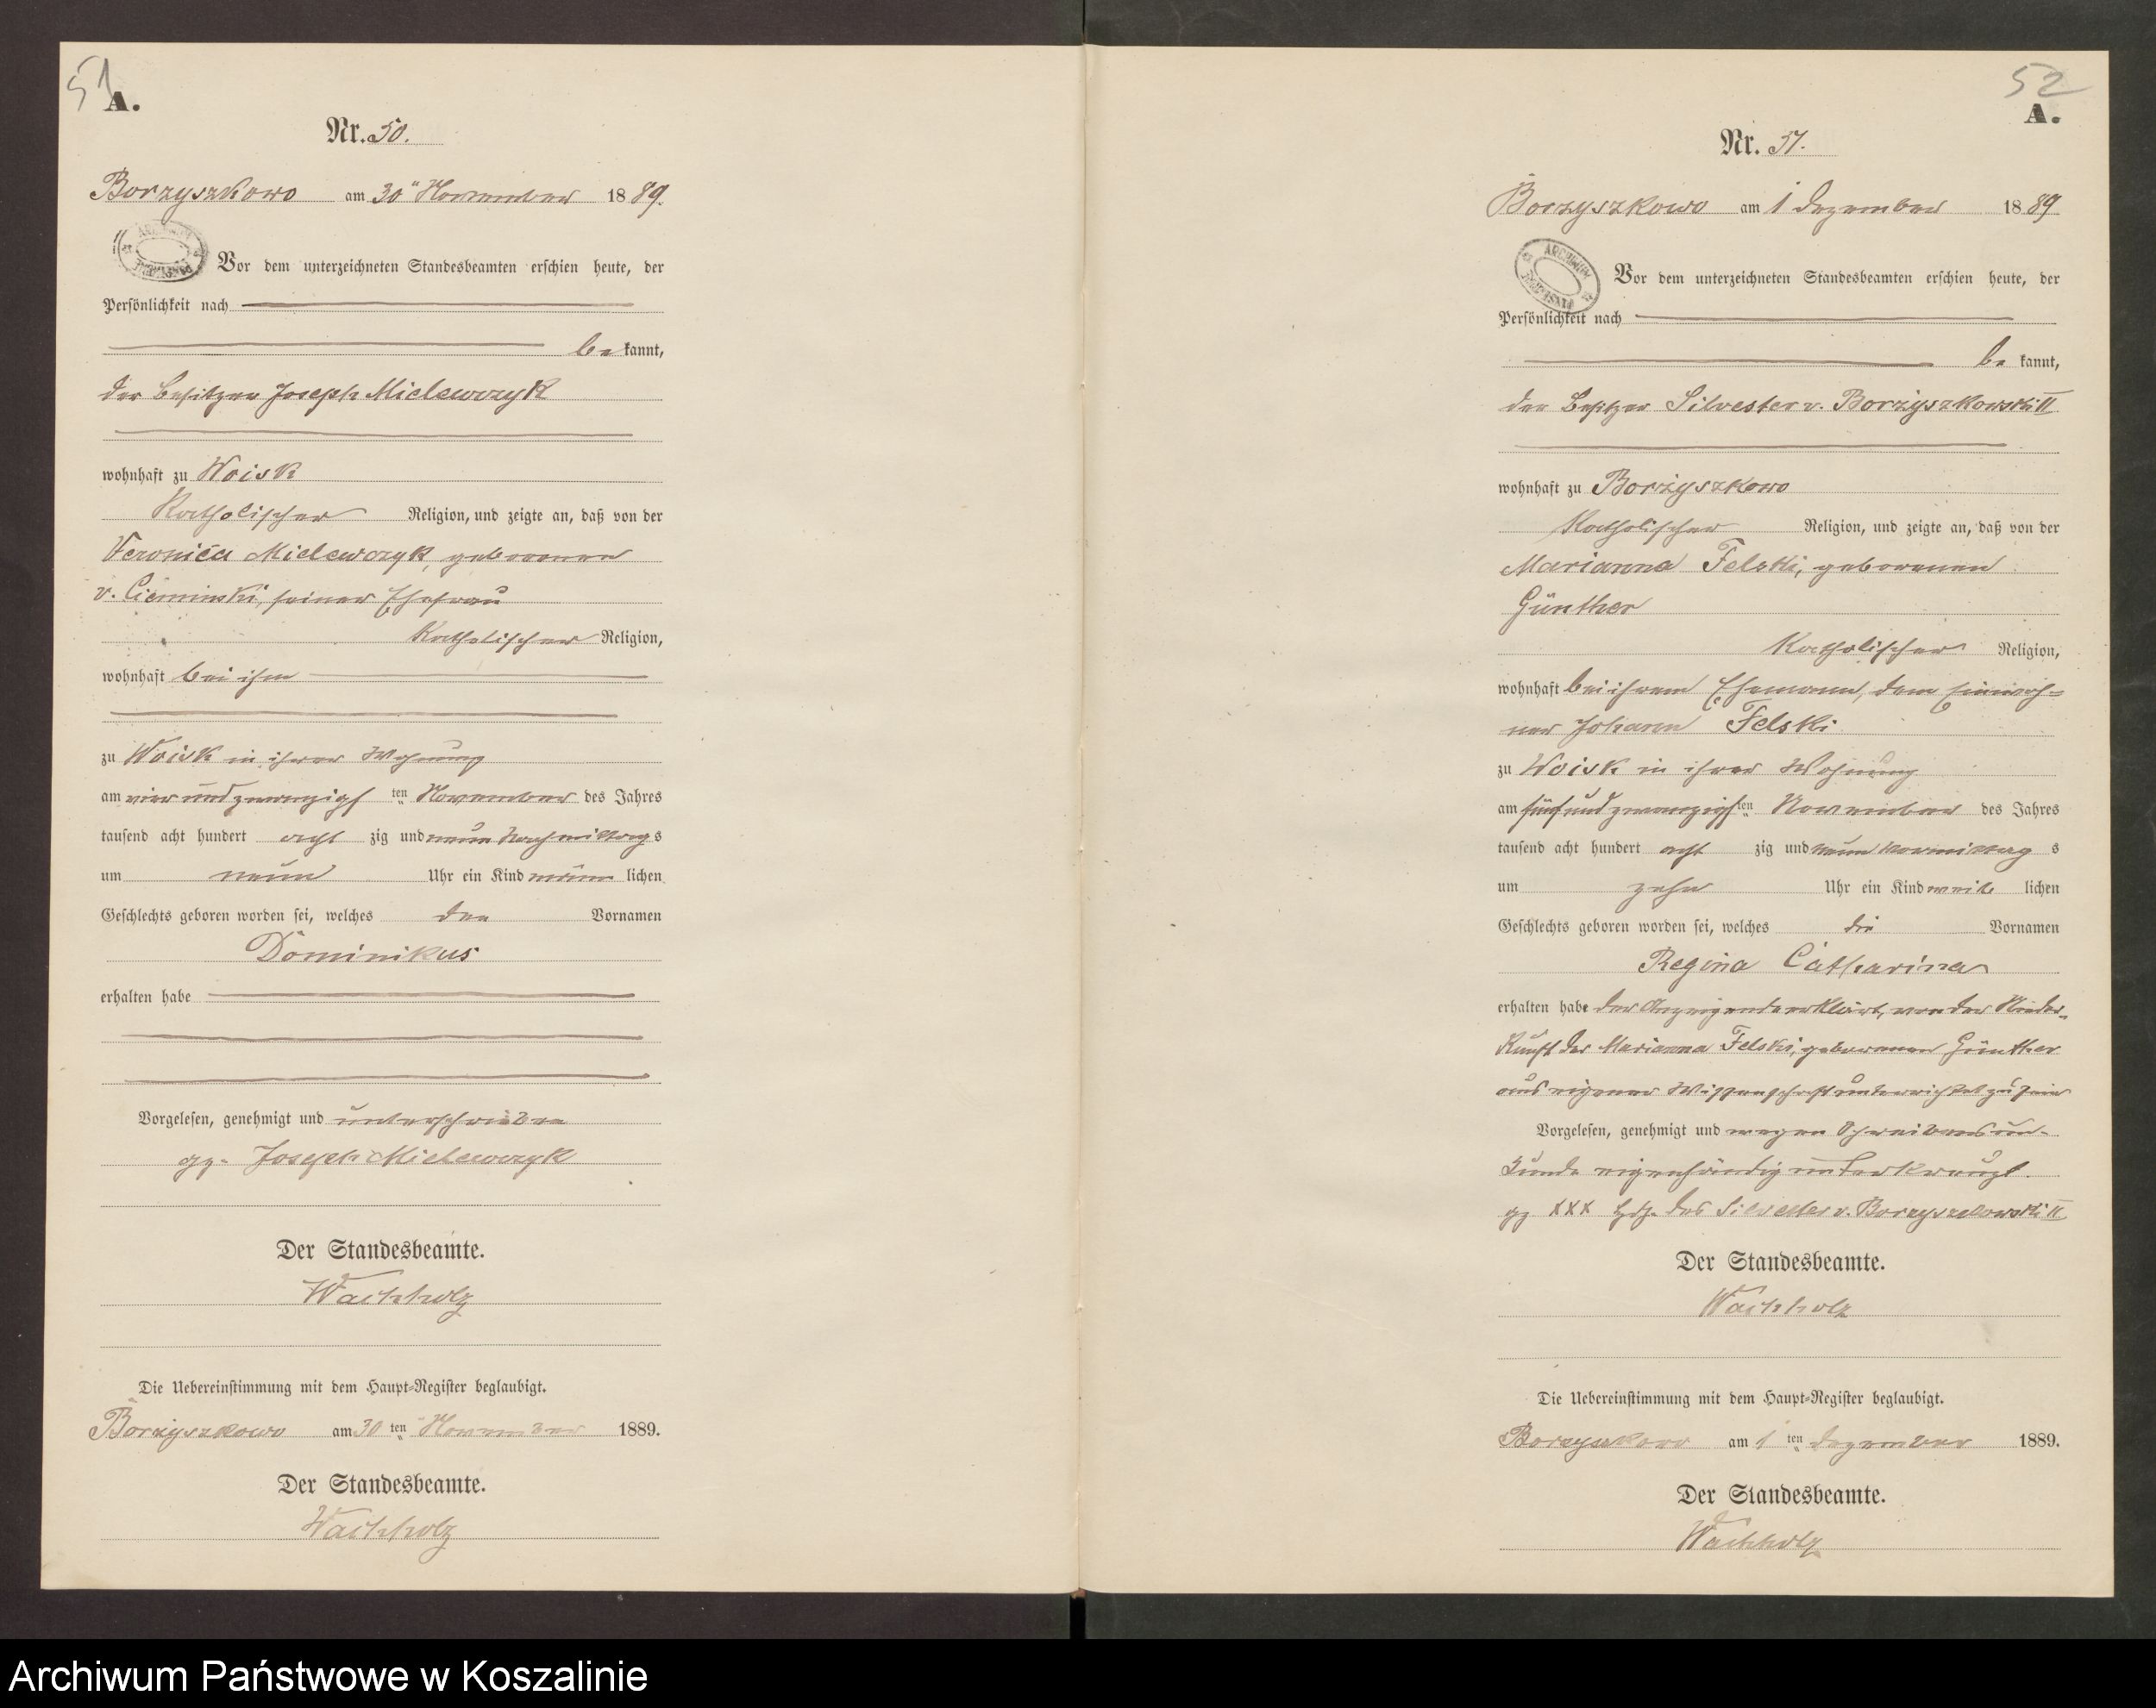 51
A.
Nr. 50.
Borzyszkowo am 30ten November 1889.
ARCHIWUM PAŃSTWOWE
Vor dem unterzeichneten Standesbeamten erschien heute, der
Persönlichkeit nach
be kannt,
der Besitzer Joseph Mielewczyk
wohnhaft zu Woisk
Katholischer Religion, und zeigte an, daß von der
Veronica Mielewczyk, geborenen
v. Cieminski, seiner Ehefrau
Katholischer Religion,
wohnhaft bei ihm
zu Woisk in ihrer Wohnung
am vier und zwanzigsten November des Jahres
tausend acht hundert acht zig und neun Nachmittags
um neun Uhr ein Kind männ lichen
Geschlechts geboren worden sei, welches den Vornamen
Dominikus
erhalten habe
Vorgelesen, genehmigt und unterschrieben
gz. Joseph Mielewczyk
Der Standesbeamte.
Wachholz
Die Uebereinstimmung mit dem Haupt-Register beglaubigt.
Borzyszkowo am 30 ten November 1889.
Der Standesbeamte.
Wachholz
52
A.
Nr. 51.
Borzyszkowo am 1 Dezember 1889
ARCHIWUM PAŃSTWOWE
Vor dem unterzeichneten Standesbeamten erschien heute, der
Persönlichkeit nach
be kannt,
der Besitzer Silvester v. Borzyszkowski II
wohnhaft zu Borzyszkowo
Katholischer Religion, und zeigte an, daß von der
Marianna Felski, geborenen
Günther
Katholischer Religion,
wohnhaft bei ihrem Ehemann, dem Einwoh=
ner Johann Felski
zu Woisk in ihrer Wohnung
am fünf und zwanzigsten November des Jahres
tausend acht hundert acht zig und neun Vormittag s
um zehn Uhr ein Kind weib lichen
Geschlechts geboren worden sei, welches die Vornamen
Regina Catharina
erhalten habe der Anzeigende erklärt, von der Nieder-
kunft der Marianna Felski, geborenen Günther
aus eigener Wissenschaft unterrichtet zu sein
Vorgelesen, genehmigt und wegen Schreibensun-
kunde eigenhändig unterkreuzt.
gz XXX Hdz. des Silvester v. Borzyszkowski II
Der Standesbeamte.
Wachholz
Die Uebereinstimmung mit dem Haupt-Register beglaubigt.
Borzyszkowo am 1 ten Dezember 1889.
Der Standesbeamte.
Wachholz
Archiwum Państwowe w Koszalinie